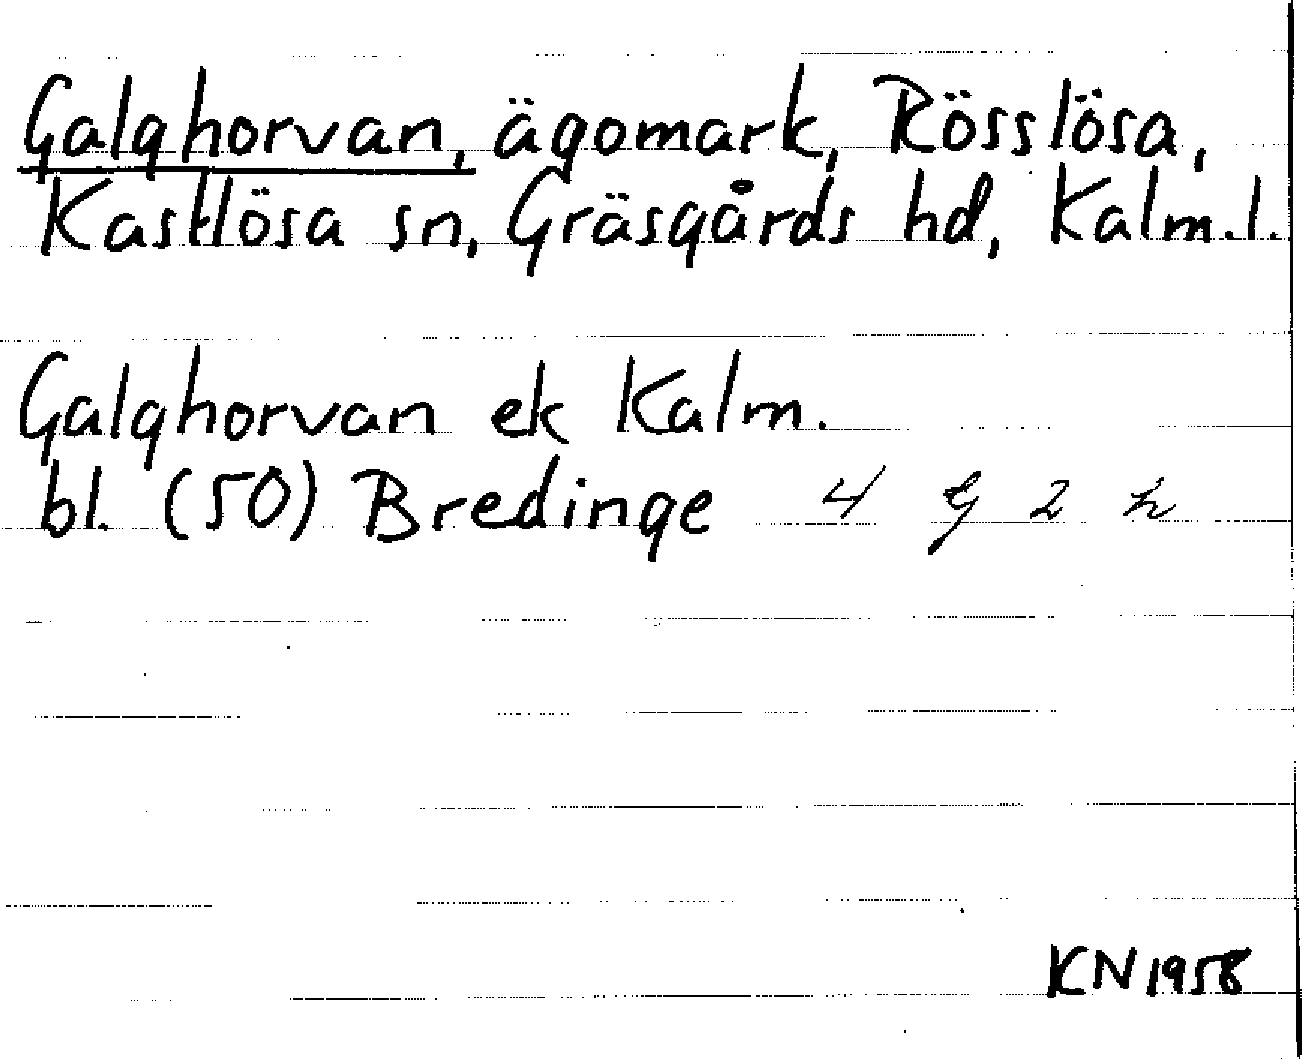 Galghorvan, ägomark, Rösslösa,
Kastlösa sn, Gräsgårds hd, Kalm.l.
Galghorvan ek Kalm.
bl. (50) Bredinge 4 G 2 h
KN 1958